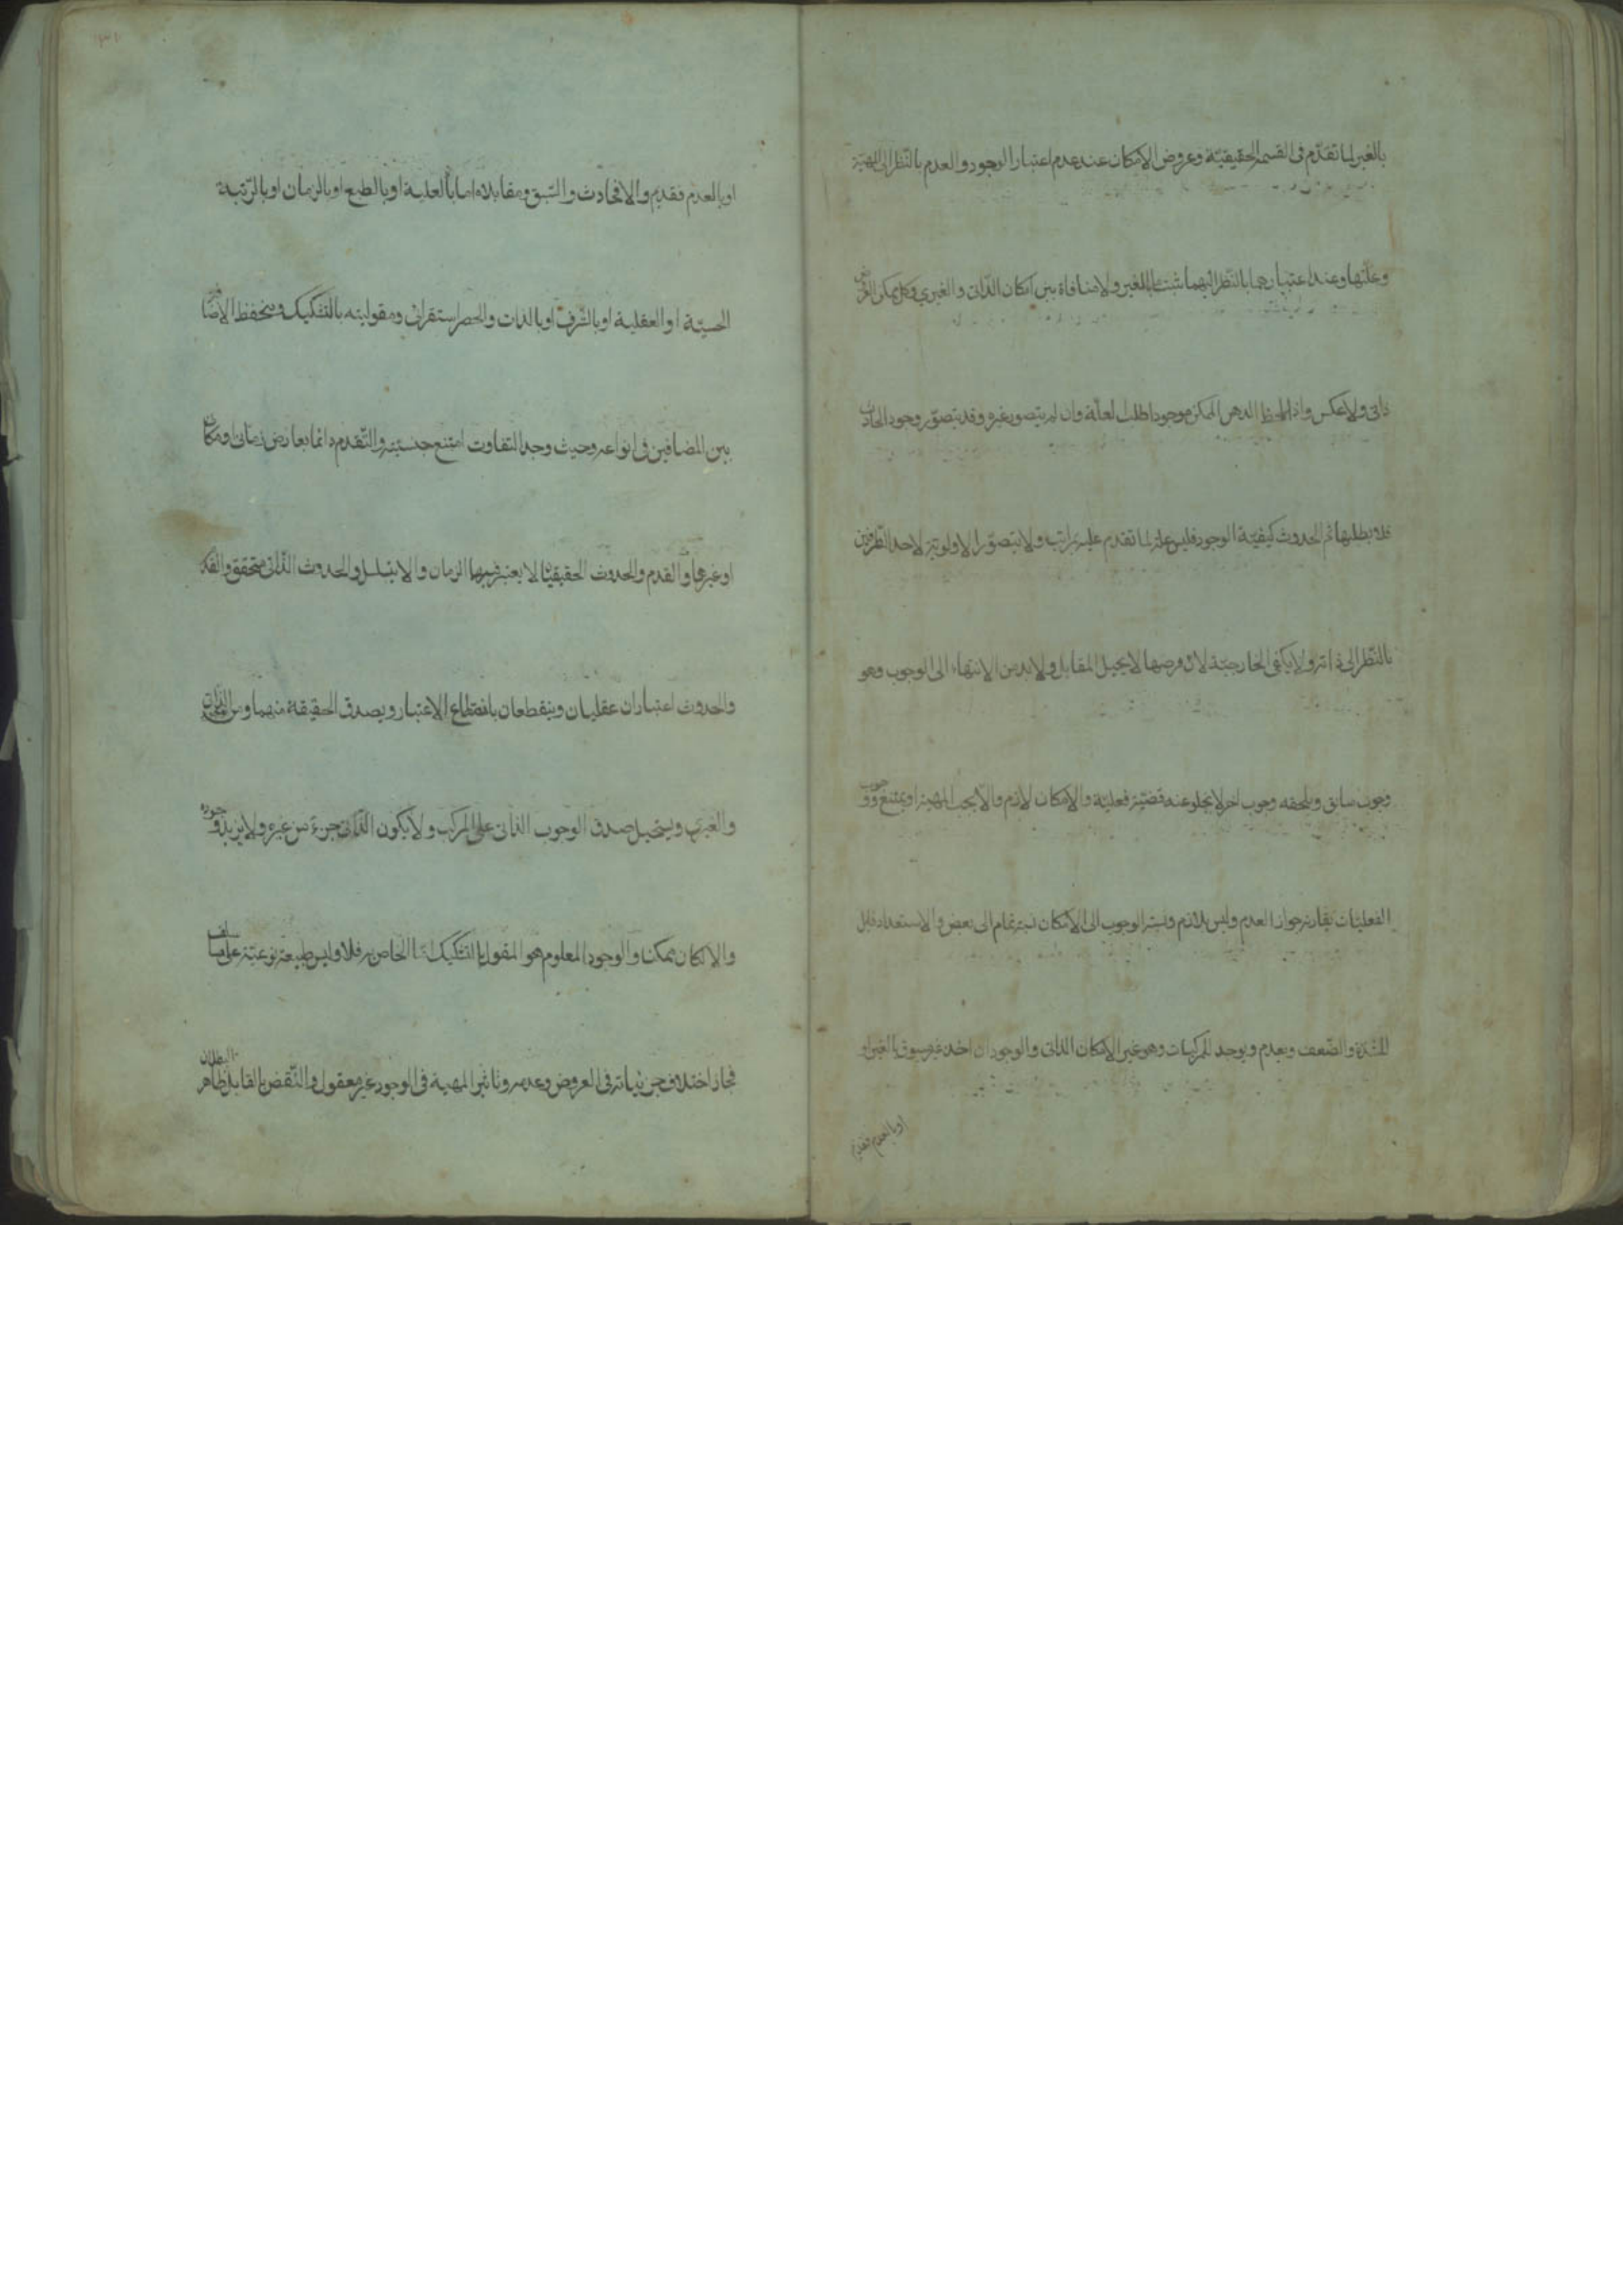 بالغير لما تقدّم فى القسمة الحقيقيّة وعروض الامكان عند عدم اعتبار الوجود والعدم بالنّظر الى المهيّة
وعلّتها وعند اعتبارهما بالنّظر اليهما يثبت ما بالغير ولا منافاة بين امكان الذّاتى والغيري وكل ممكن العروض
ذاتى ولا عكس واذا لحظ الذهن الممكن موجودا طلب العلّة وان لم يتصور غيره وقد يتصوّر وجود الحادث
فلا يطلبها ثم الحدوث كيفيّة الوجود فليس علة لما تقدم عليه بمراتب ولا يتصوّر الاولوية لاحد الطّرفين
بالنّظر الى ذاته ولا يكفى الخارجيّة لان فرضها لا يحيل المقابل ولا بد من الانتهاء الى الوجوب وهو
وجوب سابق ويلحقه وجوب اخر لا يخلو عنه قضيّة فعليّة والامكان لازم والا يجب المهية او يمتنع ووجوب
الفعليّات يقارنه جواز العدم وليس بلازم ونسبة الوجوب الى الامكان نسبة تمام الى نقص والاستعداد قابل
للشدّة والضّعف ويعدم ويوجد للمركبات وهو غير الامكان الذاتى والوجود ان اخذ غير مسبوق بالغير او
او بالعدم فقديم
او بالعدم فقديم والا فحادث والسّبق ومقابلاه اما بالعلية او بالطبع او بالزمان او بالرّتبة
الحسيّة او العقلية او بالشّرف او بالذات والحصر استقرائى ومقوليته بالتشكيك وينحفظ الاضافة
بين المضافين فى انواعه وحيث وجد التفاوت امتنع جنسيته والتّقدم دائما بعارض زمانى ومكانى
او غيرهما والقدم والحدوث الحقيقيّان لا يعتبر فيهما الزمان والا يتسلسل والحدوث الذّاتى متحقق والقدم
والحدوث اعتباران عقليان وينقطعان بانقطاع الاعتبار ويصدق الحقيقة منهما ومن الذاتى
والغيري ويستحيل صدق الوجوب الذاتى على المركب ولا يكون الذّاتى جزء من غيره ولا يزيد وجوده
والا لكان ممكنا والوجود المعلوم هو المقول بالتشكيك امّا الخاص به فلا وليس طبيعة نوعيّة على ما سلف
فجاز اختلاف جزئياته فى العروض وعدمه وتاثير المهية فى الوجود غير معقول والنّقض بالقابل ظاهر البطلان